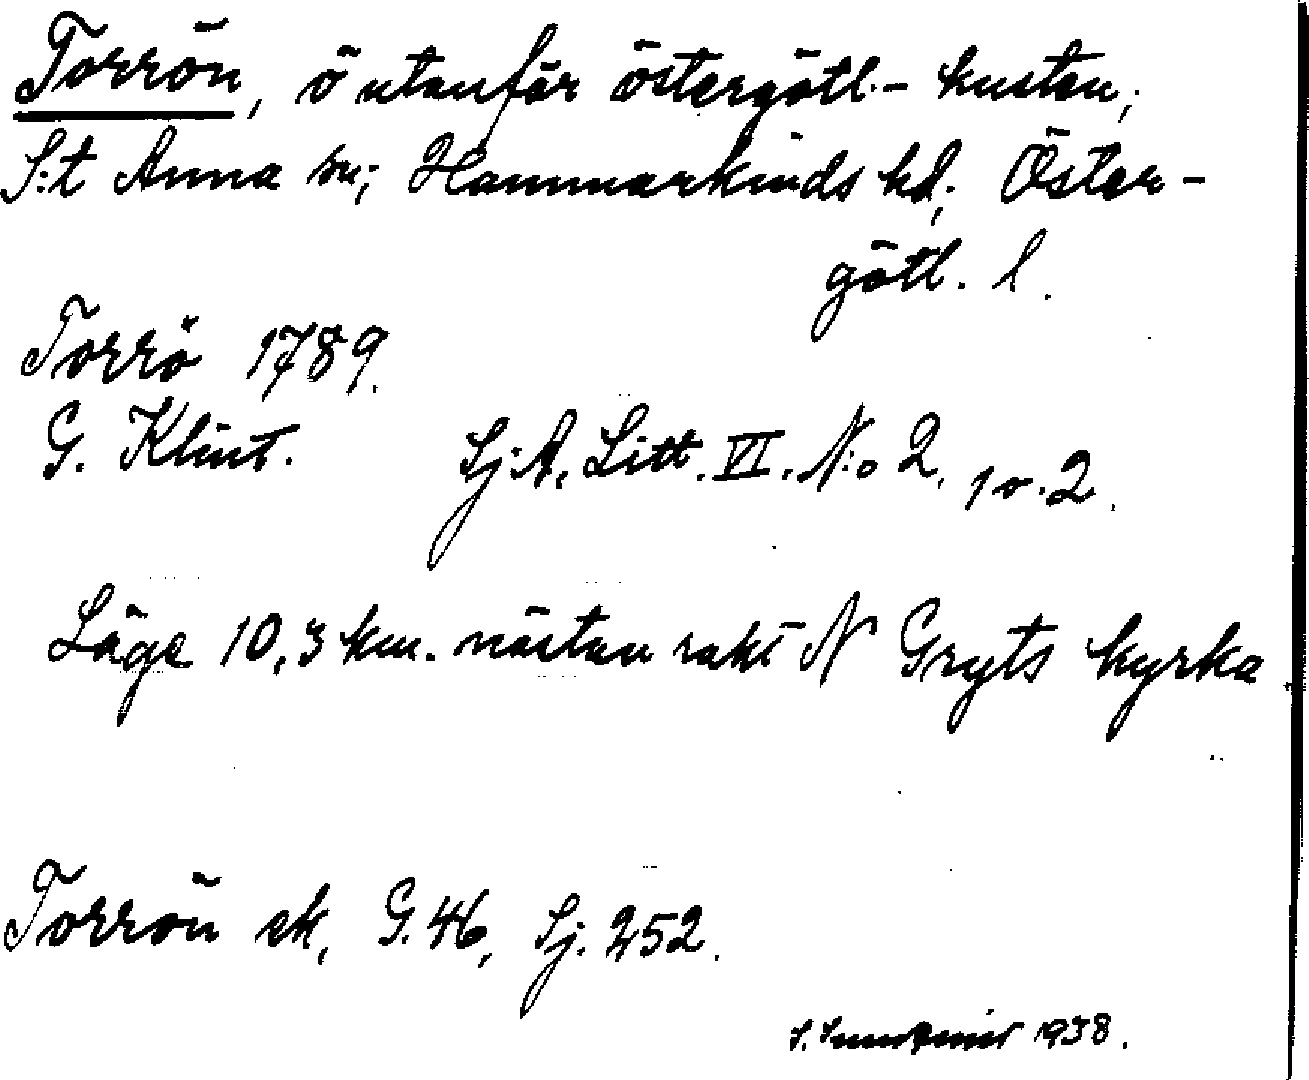 Torrön, ö utanför östergötl.- kusten,
S:t Anna sn; Hammarkinds hd, Öster-
götl. l.
Torrö 1789.
G. Klint. Sj:A. Litt. VI. N:o 2, 1 o. 2.
Läge 10,3 km. nästan rakt N Gryts kyrka
Torrön ek, G. 46, Sj. 252.
S. 1938.